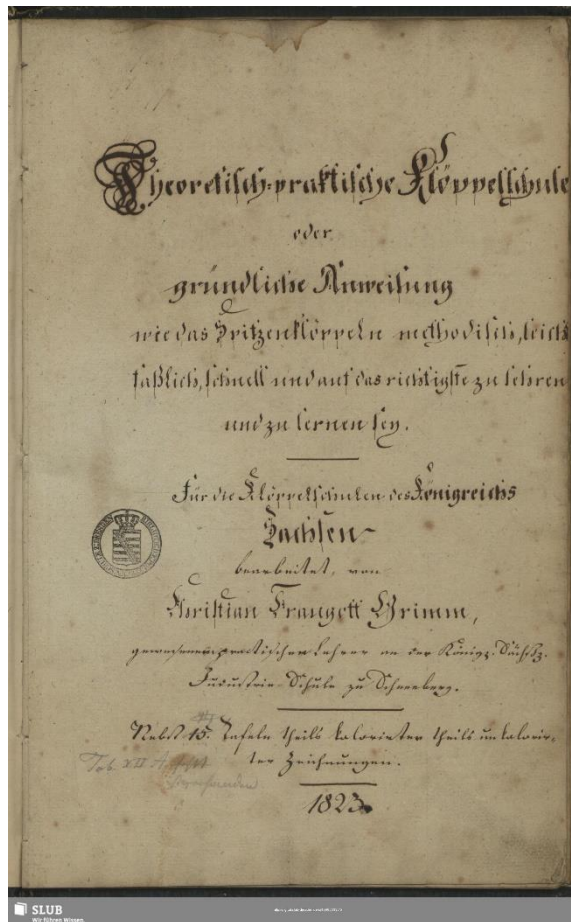 Theoretisch-praktische Klöppelschule
oder
gründliche Anweisung
wie das Spitzenklöppeln methodisch, leicht
faßlich, schnell und auf das richtigste zu lehren
und zu lernen sey.
Für die Klöppelschulen des Königreichs
Sachsen
bearbeitet, von
Christian Traugott Grimm,
gewesenem practischen Lehrer an der Königl. Sächß.
Industrie-Schule zu Schneeberg.
Nebst 15 Tafeln theils kolorirter theils unkolorir-
ter Zeichnungen.
Tab. XII
vorhanden
1823
SLUB
Wir führen Wissen.